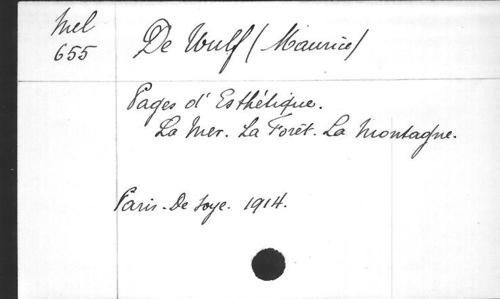 Mel
655
De Wulf (Maurice)
Pages d'Esthétique.
La Mer. La Forêt. La Montagne.
Paris. De Soye. 1914.